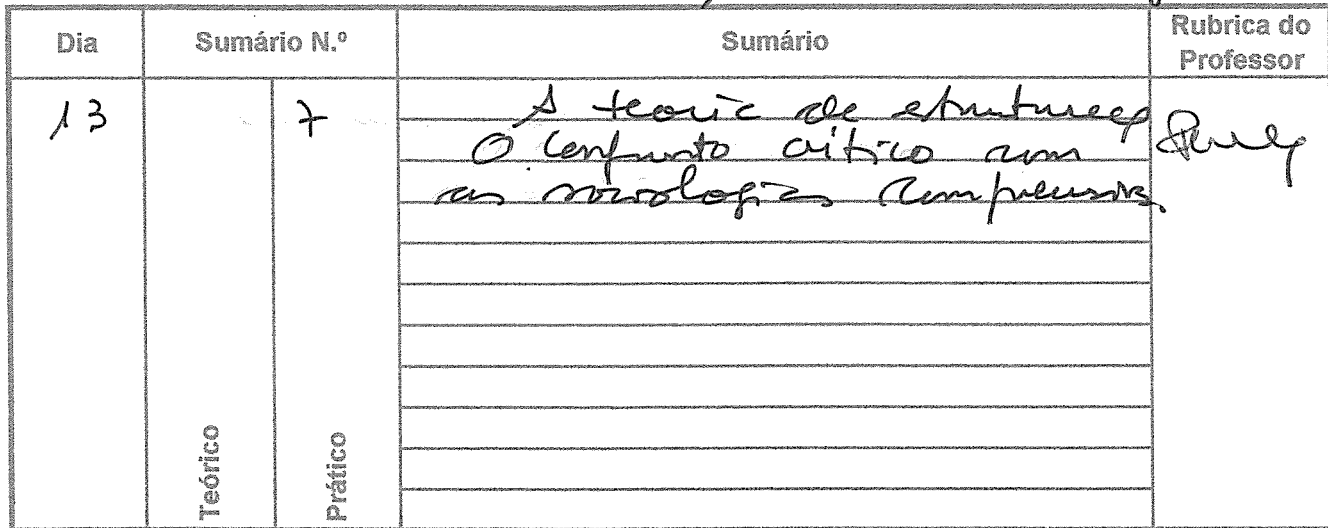 Dia Sumário N.º Sumário Rubrica do Professor
13 7 A teoria da estruturação
O confronto crítico com
as sociologias compreensivas
Teórico Prático